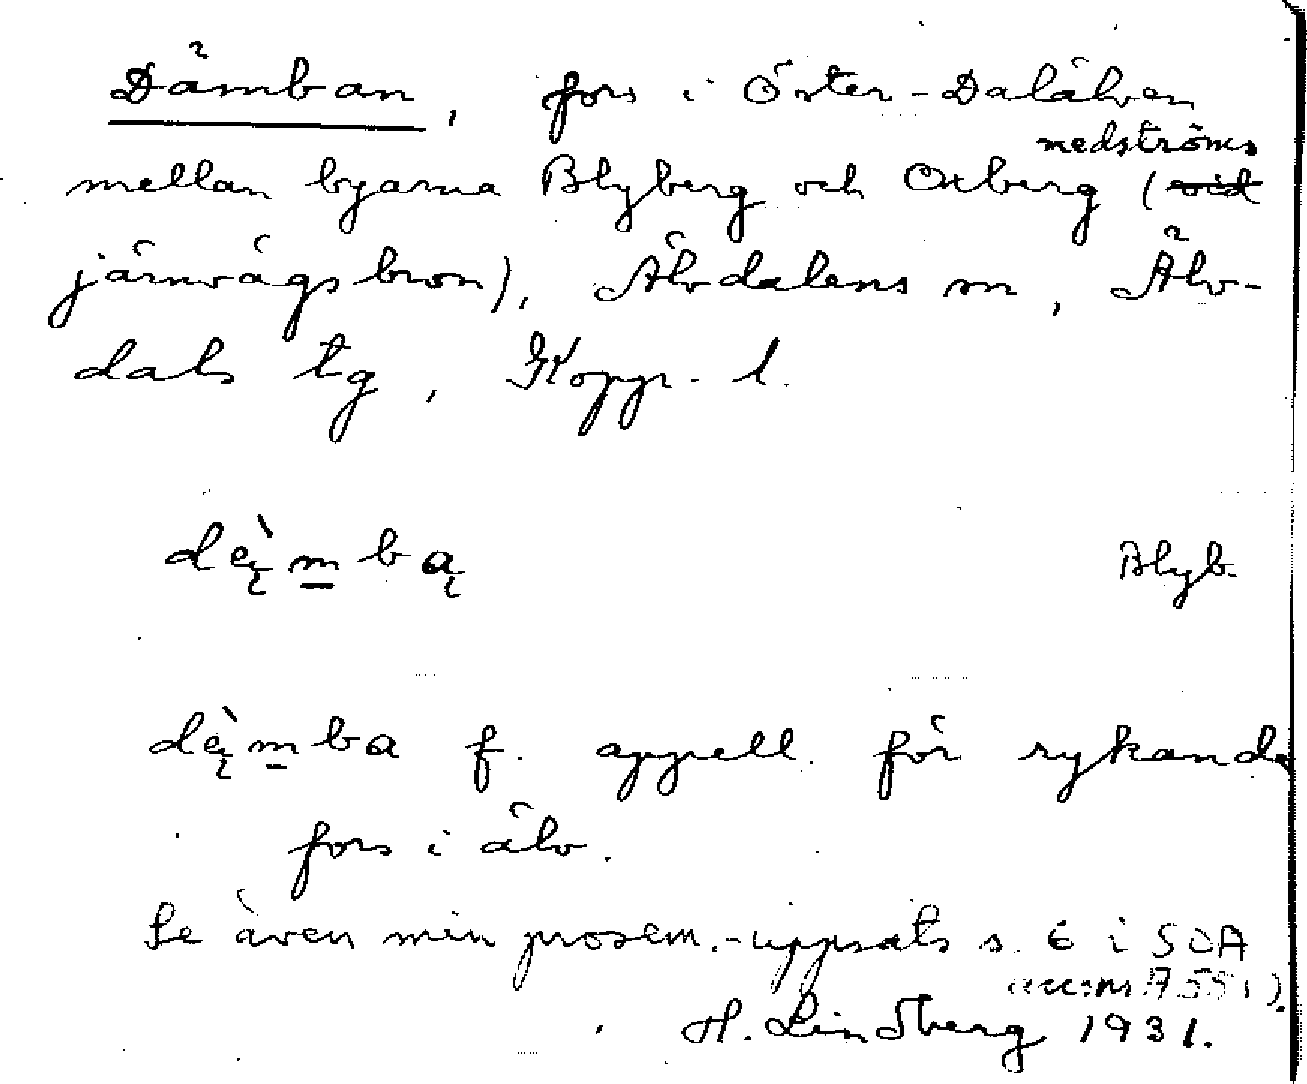 Dämban, fors i Öster-Dalälven
mellan byarna Blyberg och Oxberg (vid nedströms
järnvägsbron), Älvdalens sn, Älv-
dals tg, Kopp. l.
dę̀mbą Blyb.
dę̀mba f. appell. för rykande
fors i älv.
Se även min prosem.-uppsats s. 6 i SOA
H. Lindberg 1931.